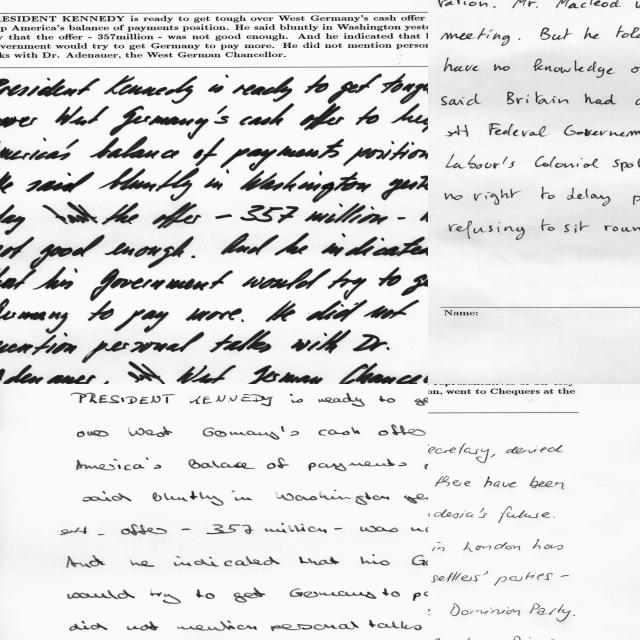 RESIDENT KENNEDY is ready to get tough over West Germany's cash offer
p America's balance of payments position. He said bluntly in Washington yest
y that the offer - 357million - was not good enough. And he indicated that
vernment would try to get Germany to pay more. He did not mention person
ks with Dr. Adenauer, the West German Chancellor.
President Kennedy is ready to get tough
over West Germany's cash offer to help
America's balance of payments position
He said bluntly in Washington yest
day the offer - 357 million -
not good enough. And he indicated
that his Government would try to g
Germany to pay more. He did not
mention personal talks with Dr.
Adenauer, West German Chance
ration. Mr. Macleod
meeting. But he told
have no knowledge o
said Britain had
Federal Governem
Labour's Colonial spo
no right to delay p
refusing to sit roun
Name:
PRESIDENT KENNEDY is ready to ge
over West Germany's cash offer
America's Balance of payments
said bluntly in Washington ye
offer - 357 million - was n
And he indicated that his G
would try to get Germany to p
did not mention personal talks
on, went to Chequers at the
ecretary, denied
there have been
desia's future.
in London has
settlers' parties -
Dominion Party.